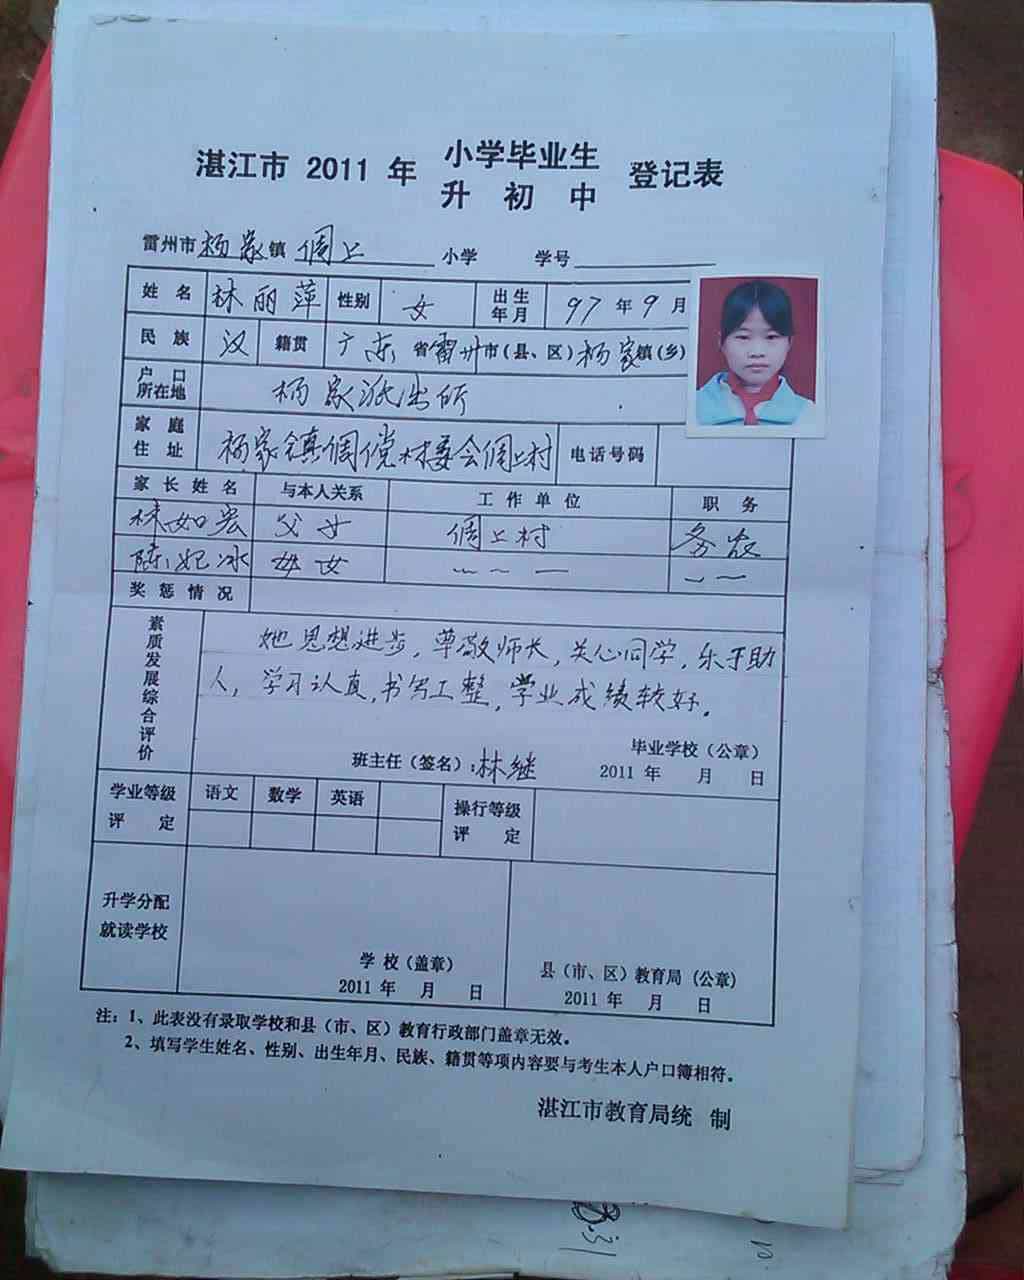 湛江市 2011 年 小学毕业生 登记表
升 初 中
雷州市杨家镇 倜上 小学 学号
姓 名 林丽萍 性别 女 出生年月 97 年 9 月
民 族 汉 籍贯 广东 省雷州市(县、区)杨家镇(乡)
户 口 所在地 杨家派出所
家 庭 住 址 杨家镇倜党村委会倜上村 电话号码
家 长 姓 名 与本人关系 工 作 单 位 职 务
林如宏 父女 倜上村 务农
陈妃冰 母女
奖 惩 情 况
素质发展综合评价
她思想进步,尊敬师长,关心同学,乐于助
人,学习认真,书写工整,学业成绩较好。
毕业学校(公章)
班主任(签名):林继 2011 年 月 日
学业等级 评 定 语文 数学 英语 操行等级 评 定
升学分配
就读学校
学 校(盖章) 县(市、区)教育局(公章)
2011 年 月 日 2011 年 月 日
注:1、此表没有录取学校和县(市、区)教育行政部门盖章无效。
2、填写学生姓名、性别、出生年月、民族、籍贯等项内容要与考生本人户口簿相符。
湛江市教育局统 制